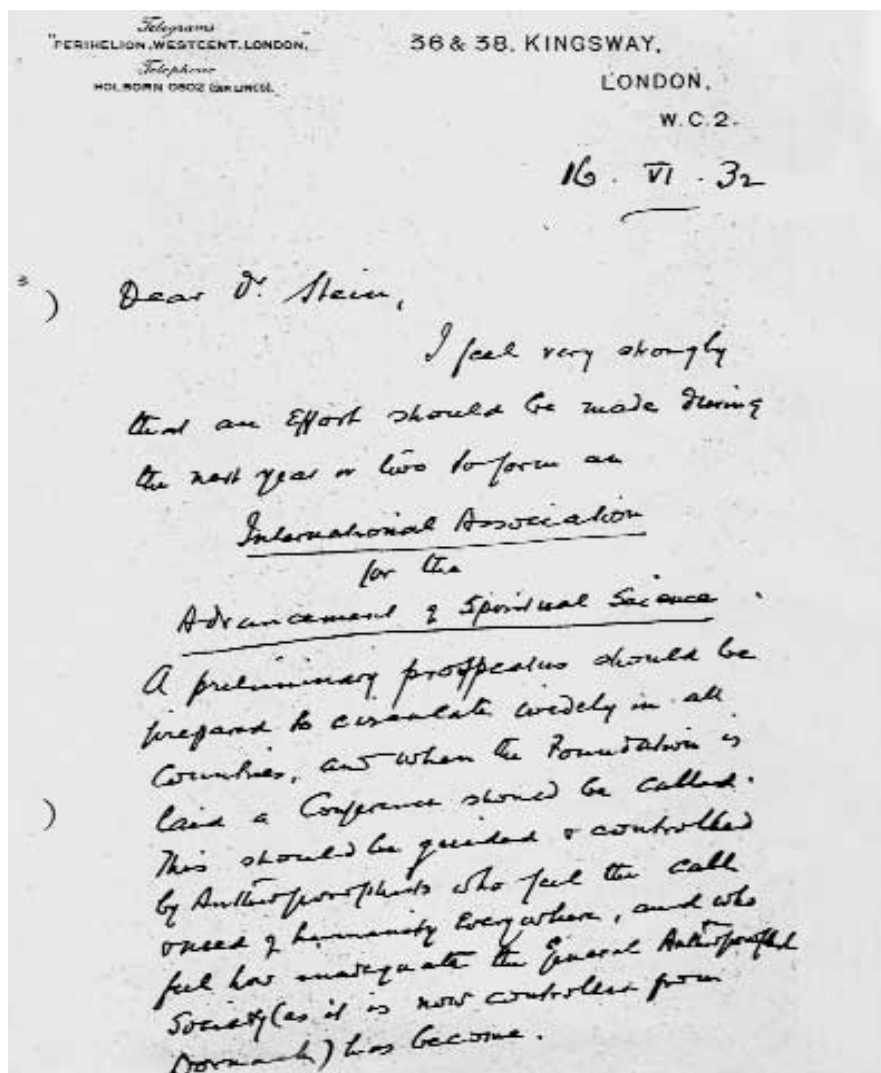 Telegrams
"PERIHELION, WESTCENT, LONDON."
Telephone
HOLBORN 0802 (SIX LINES).
36 & 38, KINGSWAY,
LONDON,
W.C.2.
16 . VI . 32
Dear Dr. Stein,
I feel very strongly
that an Effort should be made during
the next year or two to form an
International Association
for the
Advancement of Spiritual Science.
A preliminary prospectus should be
prepared to circulate widely in all
Countries, and when the Foundation is
laid a Conference should be called.
This should be guided & controlled
by Anthroposophists who feel the call
& need of humanity Everywhere, and who
feel how inadequate the General Anthroposophical
Society (as it is now controlled from
Dornach) has become.